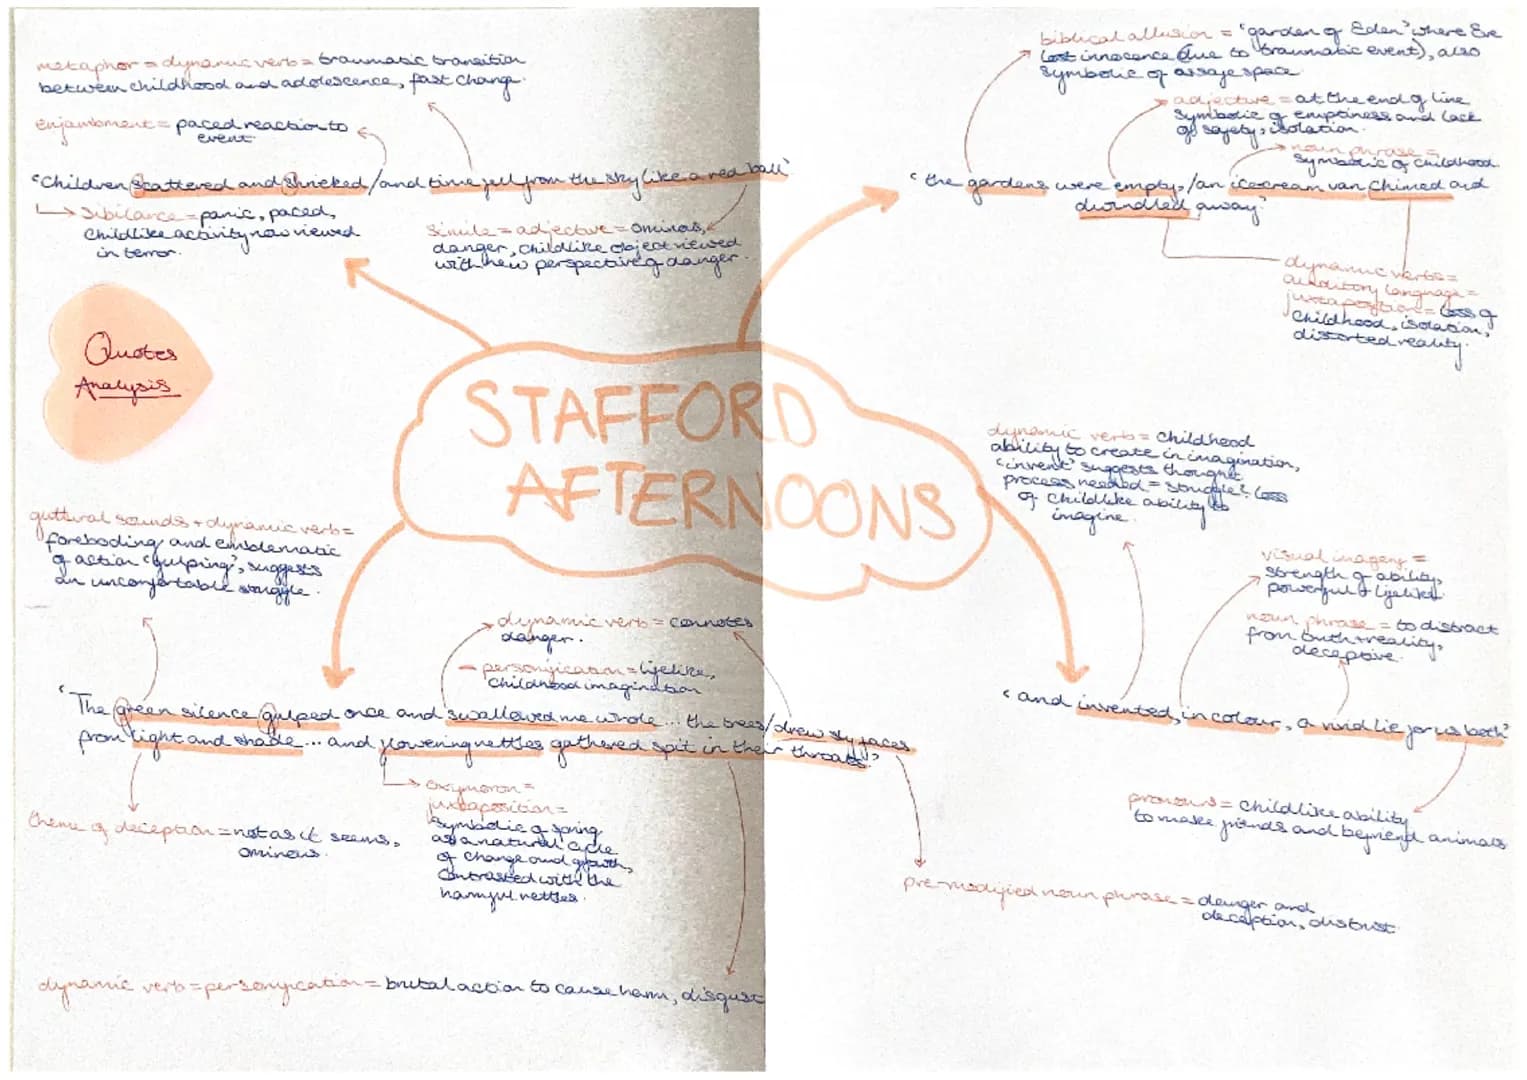 metaphor = dynamic verb = traumatic transition
between childhood and adolescence, fast change.
enjambment = paced reaction to
event.
"Children scattered and shrieked / and time fell from the sky like a red ball"
Sibilance = panic, paced,
childlike activity now viewed
in terror.
Simile = adjective = ominous,
danger, childlike object viewed
with new perspective of danger.
biblical allusion = "garden of Eden" where Eve
lost innocence (due to traumatic event), also
symbolic of a safe space.
adjective = at the end of line
symbolic of emptiness and lack
of safety, isolation.
noun phrase =
symbolic of childhood.
"the gardens were empty, / an icecream van chimed and
dwindled away"
dynamic verbs =
auditory language =
juxtaposition = loss of
childhood, isolation,
distorted reality.
Quotes
Analysis
STAFFORD
AFTERNOONS
dynamic verb = childhood
ability to create in imagination,
"invent" suggests thought
process needed = struggle? loss
of childlike ability to
imagine.
guttural sounds + dynamic verb =
foreboding and emblematic
of action "gulping", suggests
an uncomfortable struggle.
dynamic verb = connotes
danger.
personification = lifelike,
childhood imagination
visual imagery =
strength of ability,
powerful + lifelike.
noun phrase = to distract
from truth + reality,
deceptive.
"The green silence gulped once and swallowed me whole... the trees / drew sly faces
from light and shade... and flowering nettles gathered spit in their throats."
"and invented, in colour, a vivid lie for us both"
oxymoron =
juxtaposition =
symbolic of spring
as a natural cycle
of change and growth,
contrasted with the
harmful nettles.
theme of deception = not as it seems,
ominous.
pronouns = childlike ability
to make friends and befriend animals
pre-modified noun phrase = danger and
deception, distrust.
dynamic verb = personification = brutal action to cause harm, disgust